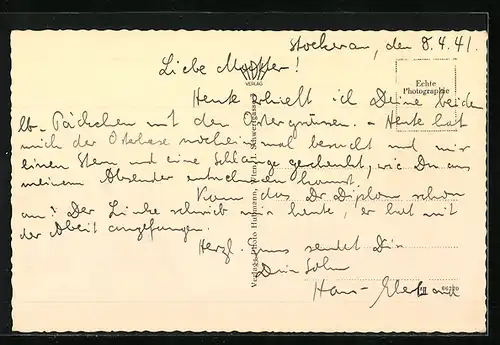 Stockerau, den 8.4.41.
Liebe Mutter!
VERLAG
Echte
Photographie
Heute erhielt ich Deine beiden
lb. Päckchen mit den Ostergrüssen. - Heute hat
mich der Osterhase nocheinmal besucht und mir
einen Stern und eine Schlange geschenkt, wie Du aus
meinem Absender entnehmen kannst.
Kam das Dr. Diplom schon
an? Der Linke schrieb mir heute, er hat mit
der Arbeit angefangen.
Herzl. Gruss sendet Dir
Dein Sohn
Hans-
Verlag: Photo